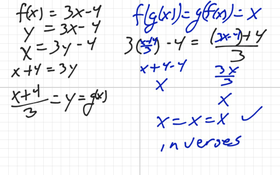 f(x) = 3x-4
y = 3x-4
x = 3y-4
x+4 = 3y
x+4/3 = y = g(x)
f(g(x)) = g(f(x)) = x
3(x+4/3) -4 = (3x-4)+4/3
x+4-4 3x/3
x x
x = x = x ✓
inverses